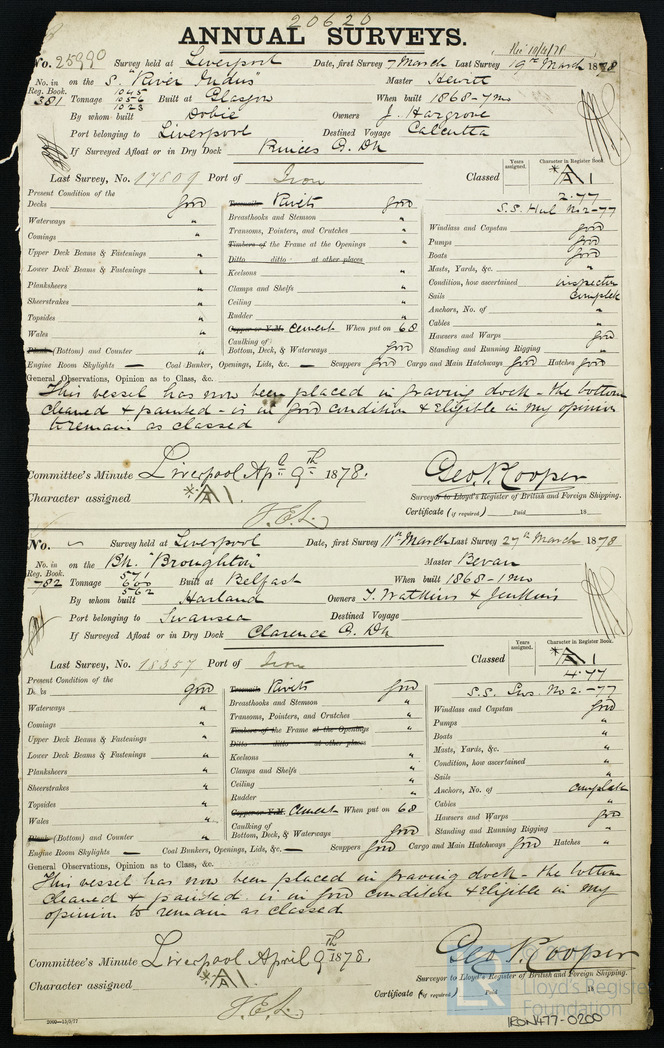 20620
ANNUAL SURVEYS.
No. 25990 Survey held at Liverpool Date, first Survey 7 March Last Survey 19th March 1878
No. in Reg. Book. 381 on the S. "River Indus" Master Hewitt
Tonnage 1045 1056 1023 Built at Glasgow When built 1868-7mo
By whom built Dobie Owners J. Hargrove
Port belonging to Liverpool Destined Voyage Calcutta
If Surveyed Afloat or in Dry Dock Princes G. Dk
Last Survey, No. 17809 Port of Iron Classed
Years assigned. Character in Register Book.
*A1
2.77
S.S. No 2-77
Present Condition of the
Decks good
Waterways "
Comings "
Upper Deck Beams & Fastenings "
Lower Deck Beams & Fastenings "
Planksheers "
Sheerstrakes "
Topsides "
Wales "
Plank (Bottom) and Counter "
Engine Room Skylights —
Treenails Rivets good
Breasthooks and Stemson "
Transoms, Pointers, and Crutches "
Timbers of the Frame at the Openings "
Ditto ditto at other places
Keelsons "
Clamps and Shelfs "
Ceiling "
Rudder "
Copper or Y.M. Cement When put on 68
Caulking of
Bottom, Deck, & Waterways good
Windlass and Capstan good
Pumps good
Boats good
Masts, Yards, &c. "
Condition, how ascertained inspection
Sails complete
Anchors, No. of "
Cables "
Hawsers and Warps good
Standing and Running Rigging "
Coal Bunker, Openings, Lids, &c. — Scuppers good Cargo and Main Hatchways good Hatches good
General Observations, Opinion as to Class, &c.
This vessel has now been placed in graving dock - the bottom
cleaned & painted - is in good condition & eligible in my opinion
to remain as classed
Committee's Minute Liverpool Apl 9th 1878.
Character assigned *A1.
T.E.L.
Geo. P. Cooper
Surveyor to Lloyd's Register of British and Foreign Shipping.
Certificate (if required) Paid 18
No. ~ Survey held at Liverpool Date, first Survey 11th March Last Survey 27th March 1878
No. in Reg. Book. 782 on the Bk. "Broughton" Master Bevan
Tonnage 571 600 562 Built at Belfast When built 1868-1mo
By whom built Harland Owners T. Watkins & Jenkins
Port belonging to Swansea Destined Voyage
If Surveyed Afloat or in Dry Dock Clarence G. Dk
Last Survey, No. 18357 Port of Iron Classed
Years assigned. Character in Register Book.
*A1
4.77
S.S. No 2.-77
Present Condition of the
Decks good
Waterways "
Comings "
Upper Deck Beams & Fastenings "
Lower Deck Beams & Fastenings "
Planksheers "
Sheerstrakes "
Topsides "
Wales "
Plank (Bottom) and Counter "
Engine Room Skylights —
Treenails Rivets good
Breasthooks and Stemson "
Transoms, Pointers, and Crutches "
Timbers of the Frame at the Openings "
Ditto ditto at other places
Keelsons "
Clamps and Shelfs "
Ceiling "
Rudder "
Copper or Y.M. Cement When put on 68
Caulking of
Bottom, Deck, & Waterways good
Windlass and Capstan good
Pumps "
Boats "
Masts, Yards, &c. "
Condition, how ascertained "
Sails "
Anchors, No. of complete
Cables "
Hawsers and Warps good
Standing and Running Rigging "
Coal Bunkers, Openings, Lids, &c. — Scuppers good Cargo and Main Hatchways good Hatches "
General Observations, Opinion as to Class, &c.
This vessel has now been placed in graving dock - the bottom
cleaned & painted is in good condition & eligible in my
opinion to remain as classed
Committee's Minute Liverpool April 9th 1878.
Character assigned *A1.
T.E.L.
Geo P. Cooper
Surveyor to Lloyd's Register of British and Foreign Shipping.
Certificate (if required) Paid 18
Lloyd's Register
Foundation
2000—13/3/77
IRON477-0200